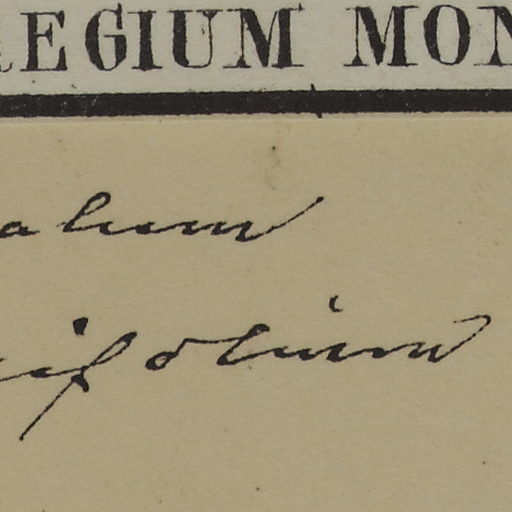 REGIUM MON
alum
ifolium